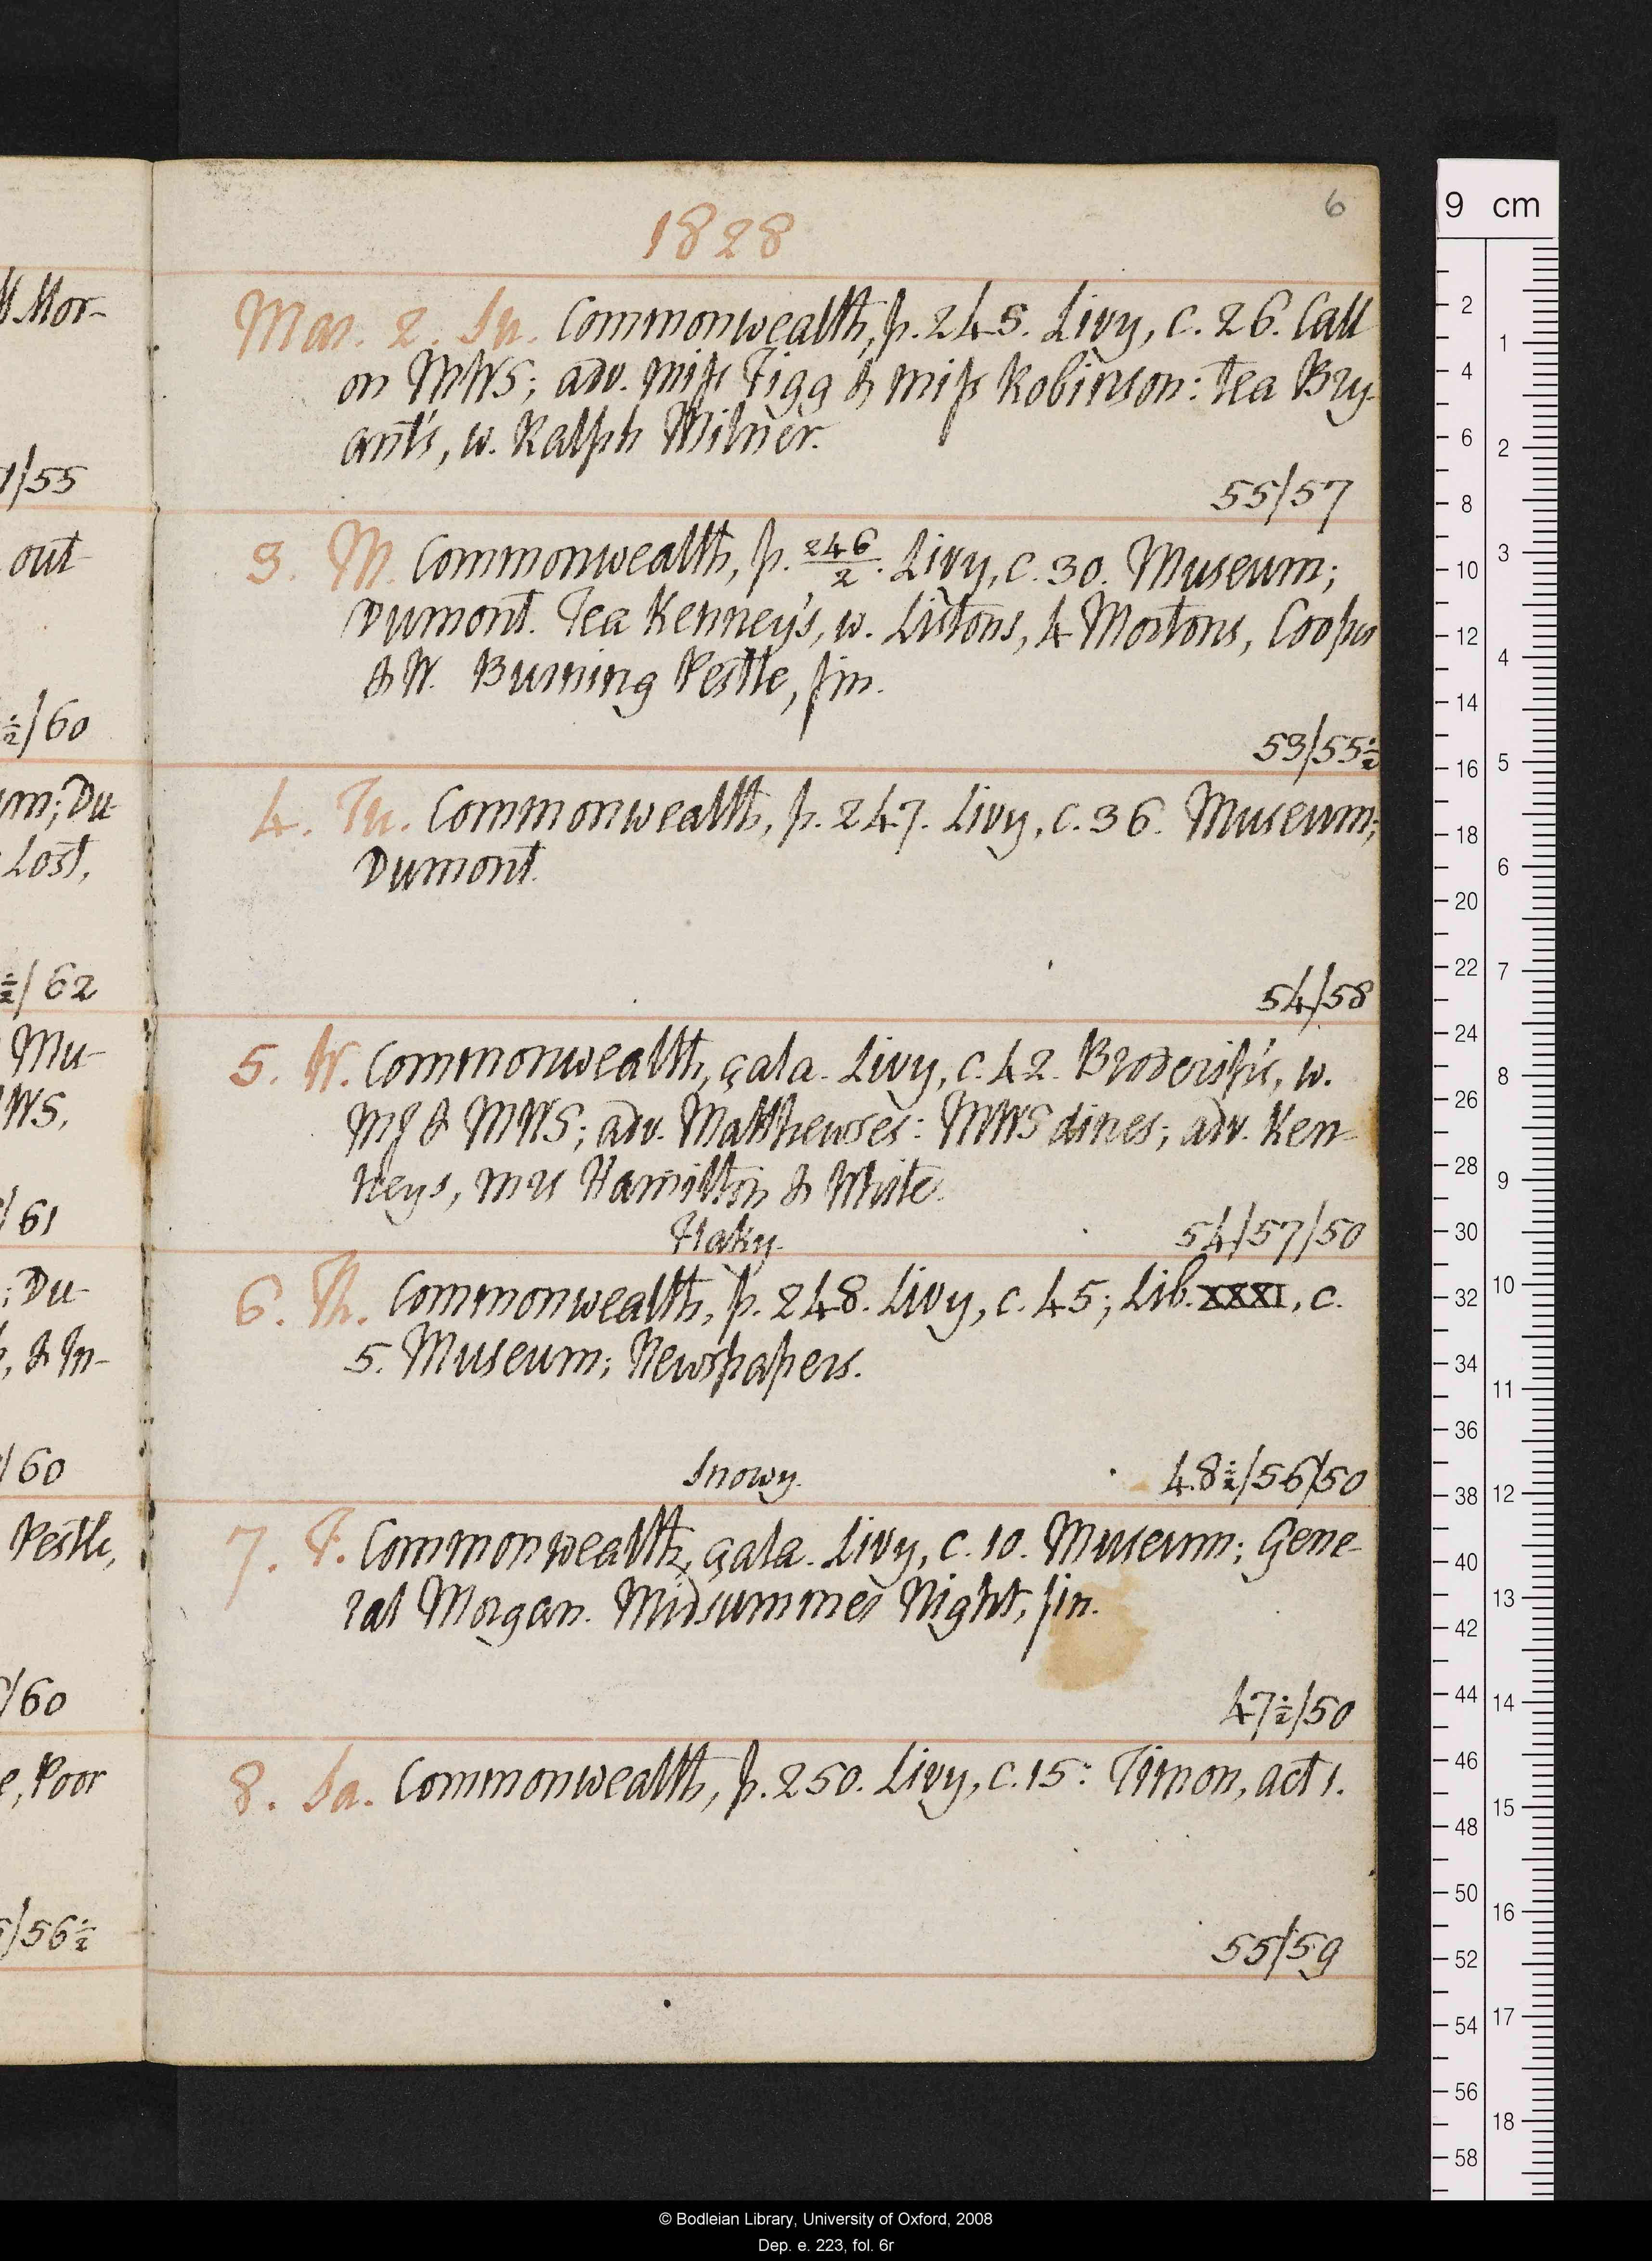 6
1828
Mor-
1/55
out
½/60
um; Du
Lost,
½/62
Mu-
WS,
/61
; Du-
, & In-
/60
Pestle,
/60
e, Poor
/56½
Mar. 2. Su. Commonwealth, p. 245. Livy, c. 26. Call
on MWS; adv. miss Figg & miss Robinson: tea Bry-
ant's, w. Ralph Milner.
55/57
3. M. Commonwealth, p. 246/2. Livy, c. 30. Museum;
Dumont. Tea Kenney's, w. Listons, 4 Mortons, Cooper
& W. Burning Pestle, fin.
53/55½
4. Tu. Commonwealth, p. 247. Livy, c. 36. Museum;
Dumont.
54/58
5. W. Commonwealth, çala. Livy, c. 42. Broderip's, w.
MJ & MWS; adv. Matthewses: MWS dines; adv. Ken-
neys, mrs Hamilton & White.
Flaky. 54/57/50
6. Th. Commonwealth, p. 248. Livy, c. 45; Lib. XXXI, c.
5. Museum; Newspapers.
Snowy. 48½/56/50
7. F. Commonwealth, çala. Livy, c. 10. Museum; Gene-
ral Morgan. Midsummer Night, fin.
47½/50
8. Sa. Commonwealth, p. 250. Livy, c. 15: Timon, act 1.
55/59
9 cm
2
4
6
8
10
12
14
16
18
20
22
24
26
28
30
32
34
36
38
40
42
44
46
48
50
52
54
56
58
1
2
3
4
5
6
7
8
9
10
11
12
13
14
15
16
17
18
© Bodleian Library, University of Oxford, 2008
Dep. e. 223, fol. 6r